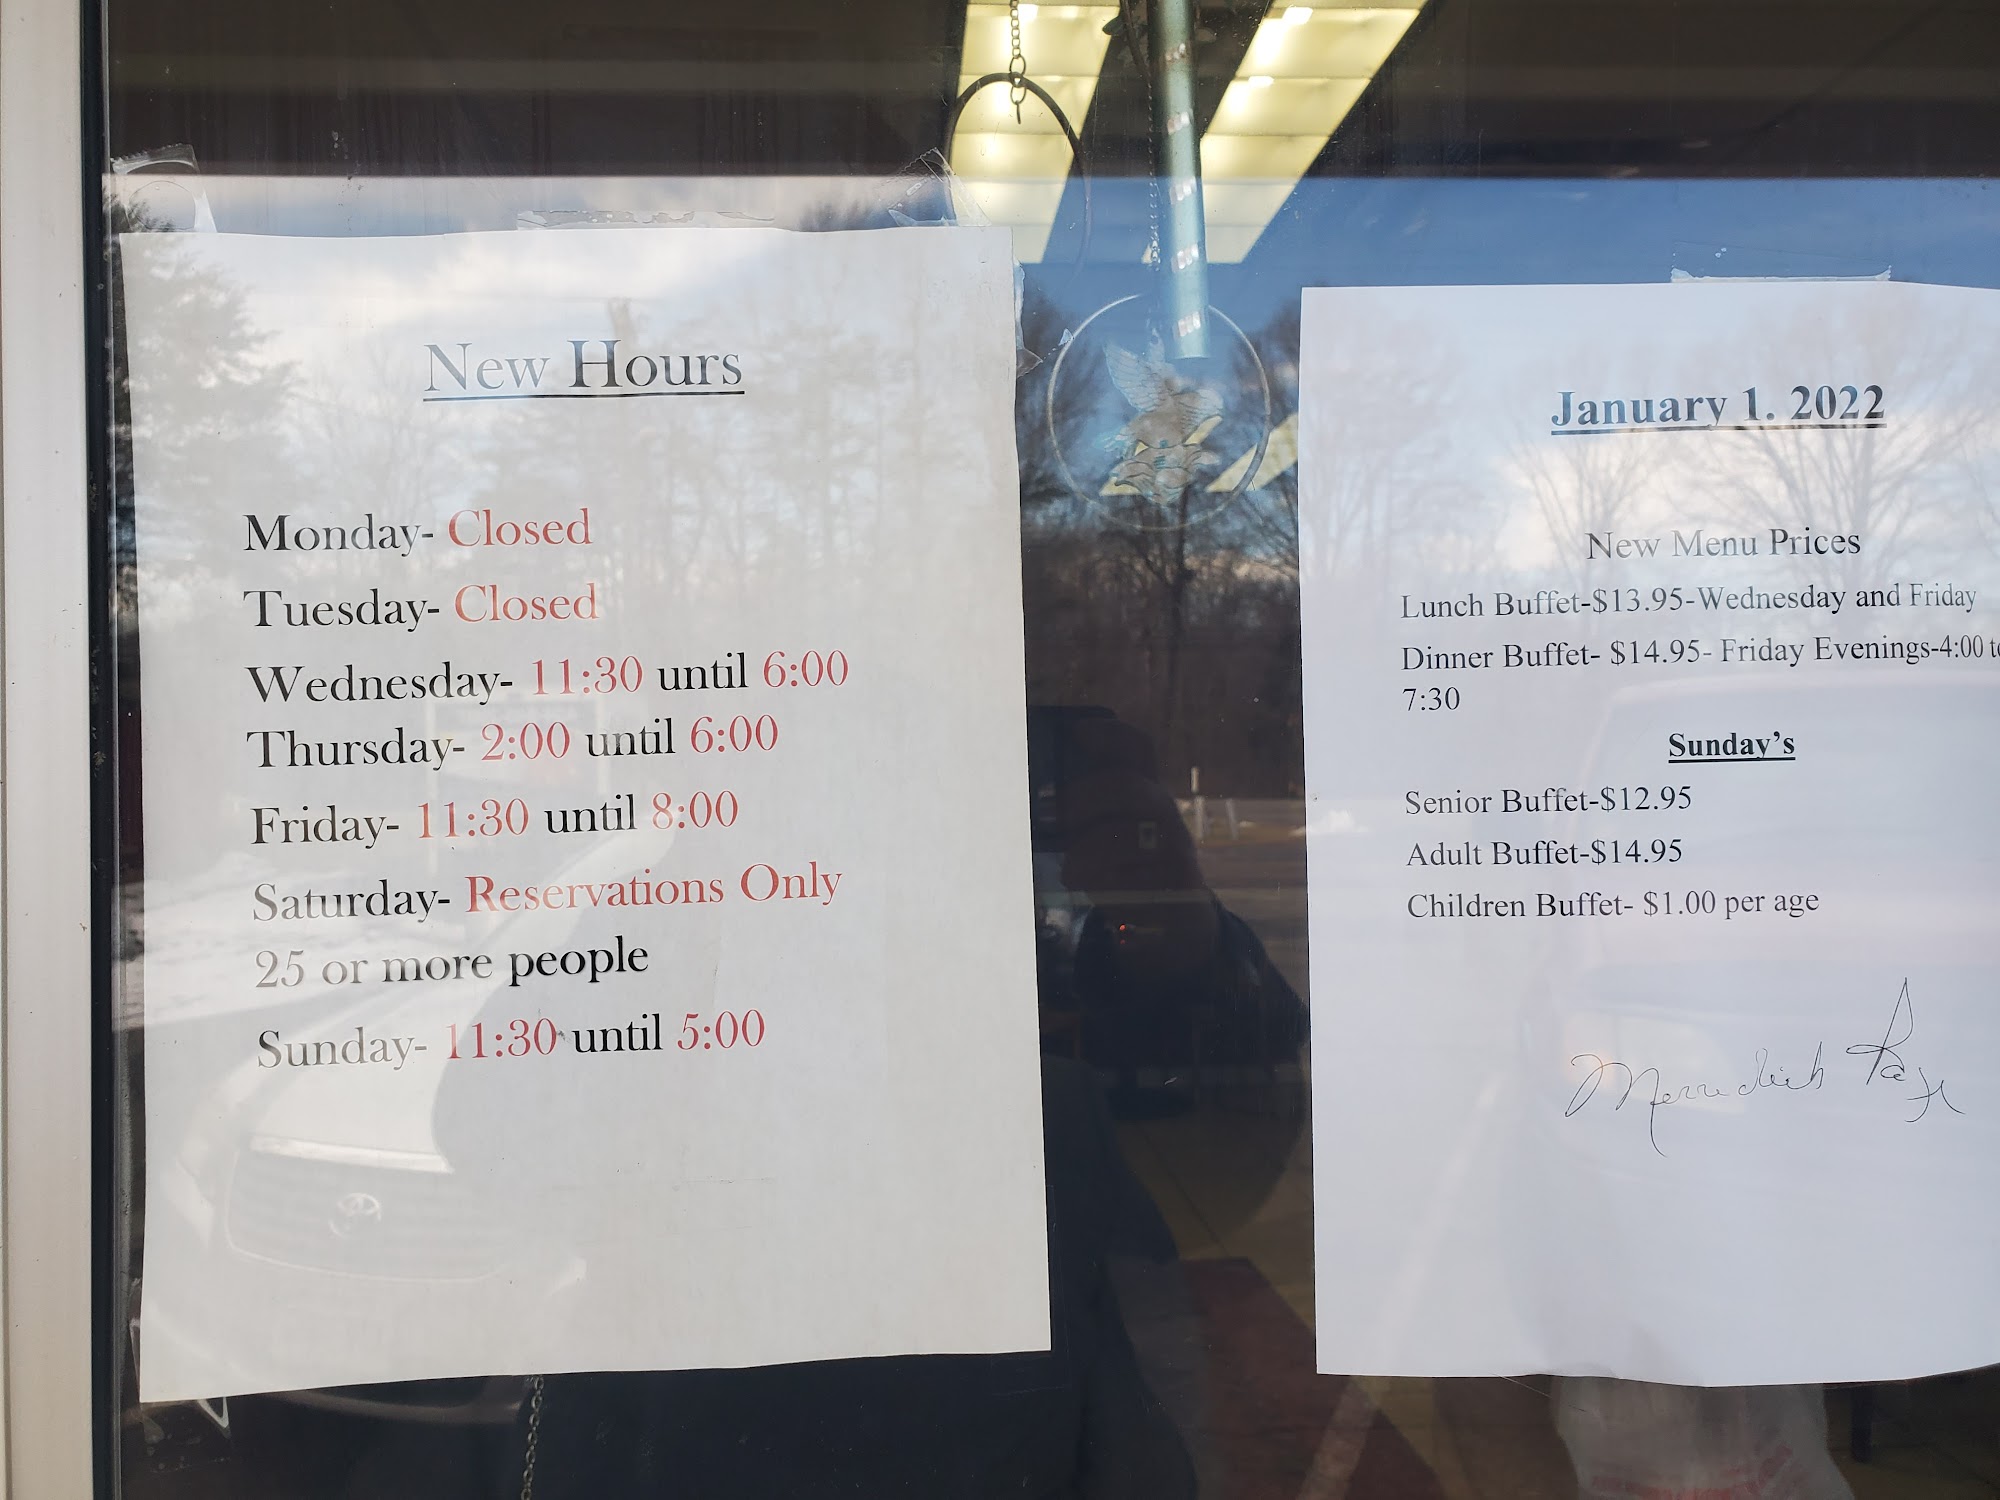 New Hours
Monday- Closed
Tuesday- Closed
Wednesday- 11:30 until 6:00
Thursday- 2:00 until 6:00
Friday- 11:30 until 8:00
Saturday- Reservations Only
25 or more people
Sunday- 11:30 until 5:00
January 1. 2022
New Menu Prices
Lunch Buffet-$13.95-Wednesday and Friday
Dinner Buffet- $14.95- Friday Evenings-4:00 to
7:30
Sunday's
Senior Buffet-$12.95
Adult Buffet-$14.95
Children Buffet- $1.00 per age